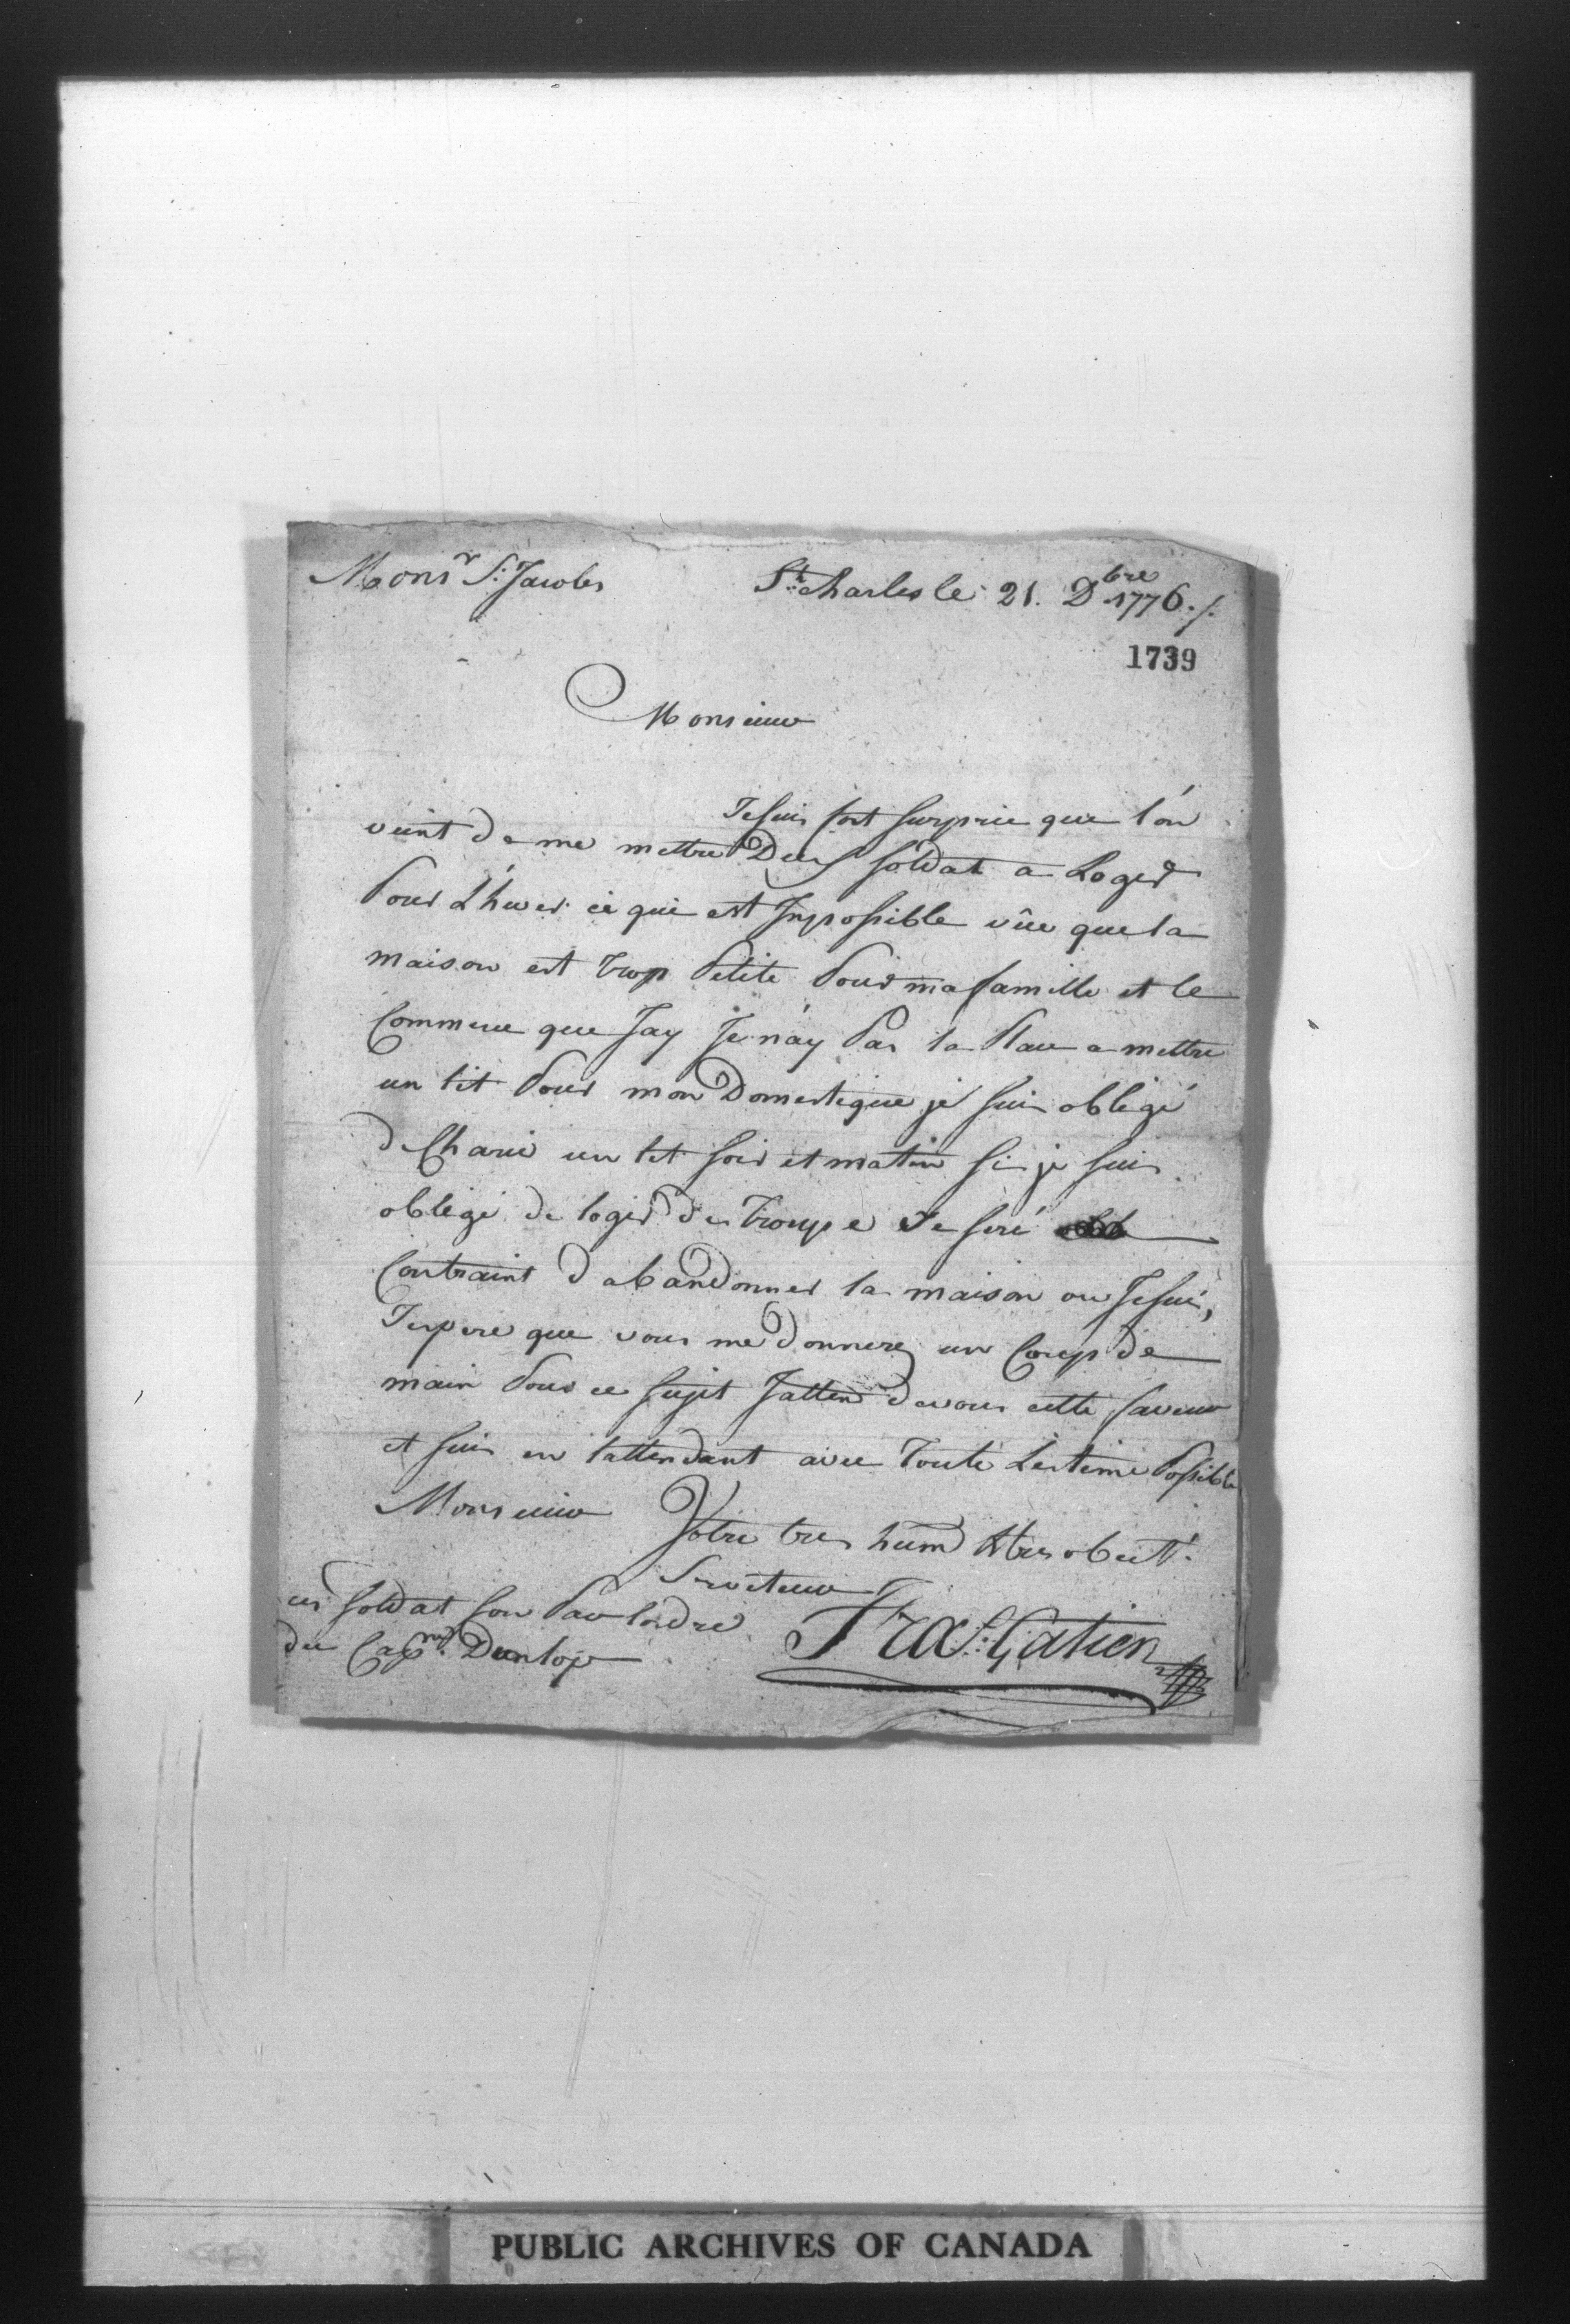 Monsr S: Jacobs
St: Charles le 21. Dbre 1776./.
1739
Monsieur
Je suis fort surprie que l'on
vient de me mettre Deux soldat a Loger
Pour L'hiver ce qui est Impossible vûe que la
maison est trop Petite Pour ma famille et le
Commerce que Jay Je n'ay Pas la Place a mettre
un lit Pour mon Domestique je suis obligé
de Charié un lit soir et matin si je suis
obligé de loger des troupe Je seré
Contraint d abandonner la maison ou Je suis,
Jespere que vous me donnerez un Coup de
main Pour ce sujet Jatten de vous cette faveur
et suis en lattendant avec toute Lestime Possible
Monsieur Votre tres hum & tres obeit.
Serviteur
ces soldat son Par lordre
du Capne Dunlop
Frs X S: Gatien
PUBLIC ARCHIVES OF CANADA